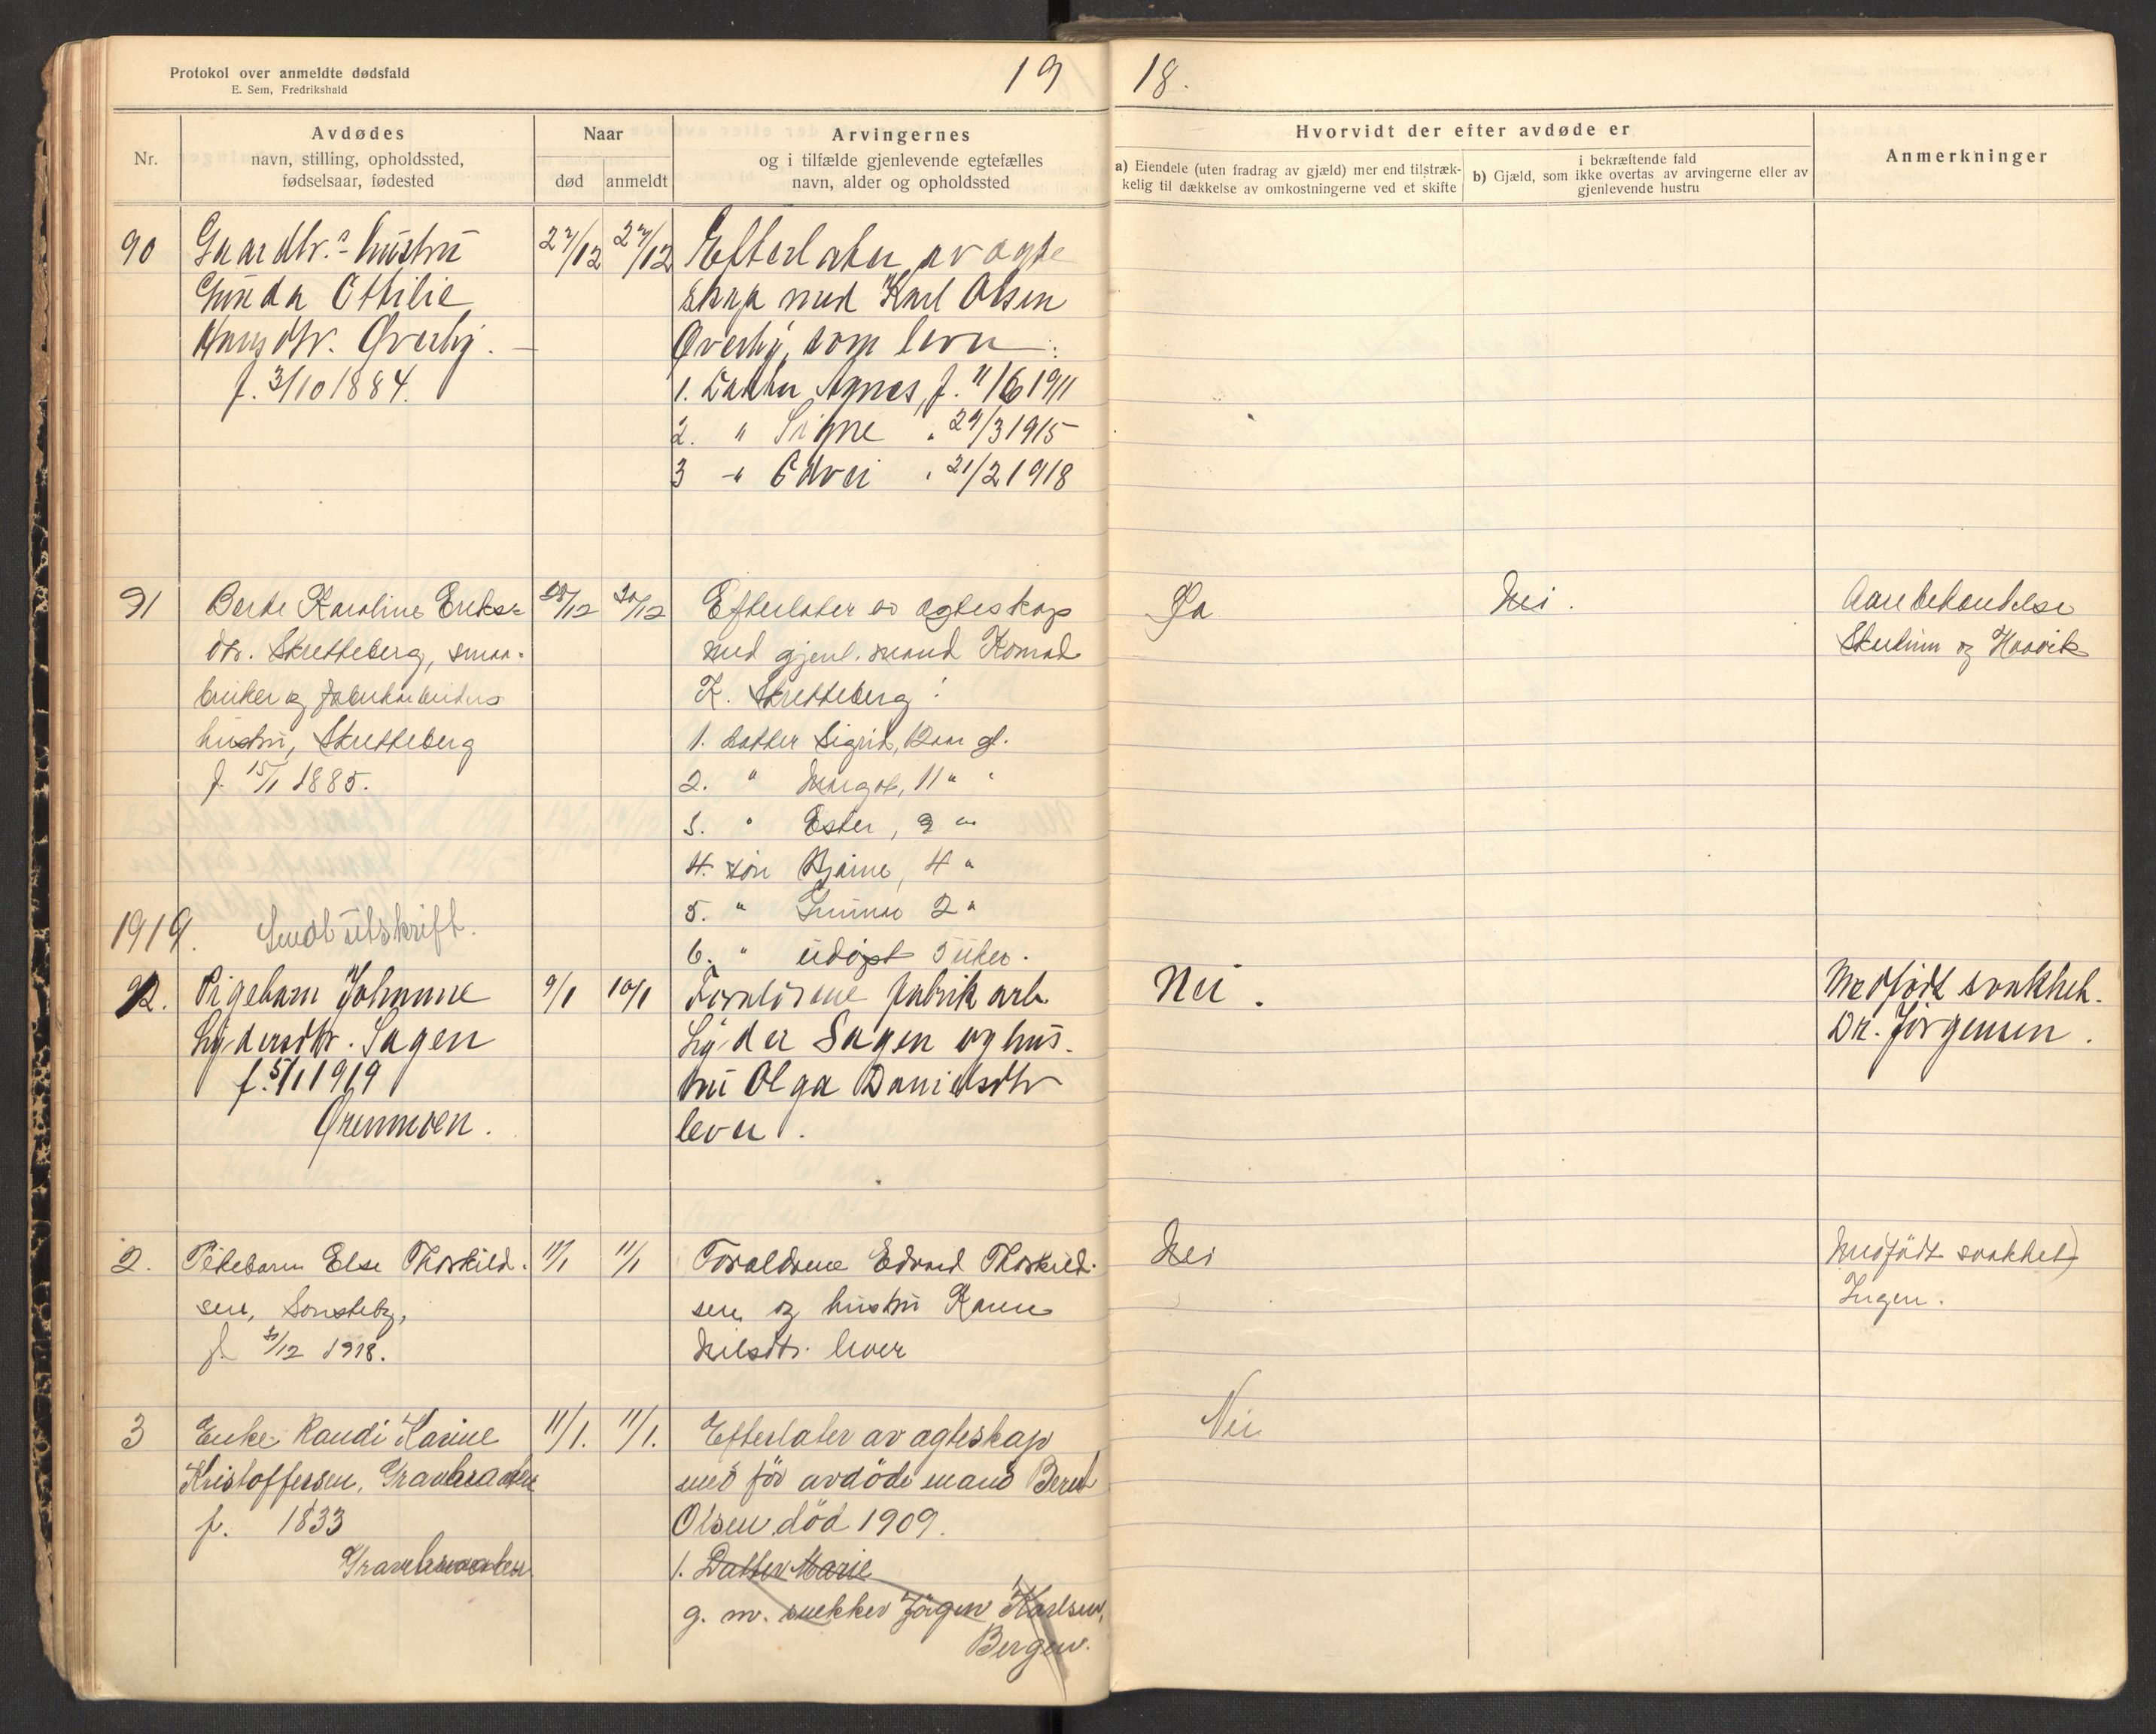 Protokol over anmeldte dødsfald
E. Sem, Fredrikshald
19 18.
Nr.
Avdødes
navn, stilling, opholdssted,
fødselsaar, fødested
Naar
død anmeldt
Arvingernes
og i tilfælde gjenlevende egtefælles
navn, alder og opholdssted
Hvorvidt der efter avdøde er
a) Eiendele (uten fradrag av gjæld) mer end tilstræk-
kelig til dækkelse av omkostningerne ved et skifte
i bekræftende fald
b) Gjæld, som ikke overtas av arvingerne eller av
gjenlevende hustru
Anmerkninger
90 Gaardbr.s hustru 27/12 27/12 Efterlater av ægte
Gunda Ottilie skap med Karl Olsen
Hansdtr. Øverby. Øverby, som lever:
f. 3/10 1884. 1. Datter Agnes, f. 11/6 1911
2. " Signe " 29/3 1915
3 " " 21/2 1918
91 Berte Karoline Eriks- 28/12 30/12 Efterlater av ægteskap Ja Nei.
dtr. Skretteberg, smaa- med gjenl. mand Konrad og Haavik
bruker og fabrikarbeiders K. Skretteberg:
hustru, Skretteberg 1. datter Sigrid, 12 aar gl.
f. 15/1 1885. 2. " Margot, 11 " "
3. " Ester, 9 "
4. søn Bjarne, 4 "
5. " Gunnar 2 "
1919. Sendt utskrift.
6. " udøpt 5 uker.
Pigebarn Johanne 9/1 10/1 Forældrene fabrikarb. Nei. Medfødt svakhet.
Lydersdtr. Sagen Lyder Sagen og hus- Dr. Jørgensen.
f. 5/1 1919 tru Olga Danielsdtr
lever.
2. Pikebarn Else Thorkild- 11/1 11/1 Forældrene Edvard Thorkild- Nei Medfødt svakhet)
sen, Sønsteby, sen og hustru Karen Ingen.
f. 31/12 1918. Nilsdtr. lever
3 Enke Randi Karine 11/1. 11/1. Efterlater av ægteskap Nei
Kristoffersen, med før avdøde mand Bernt
f. 1833 Olsen død 1909.
1. Datter Marie
g. m. snekker Jørgen Karlsen,
Bergen.